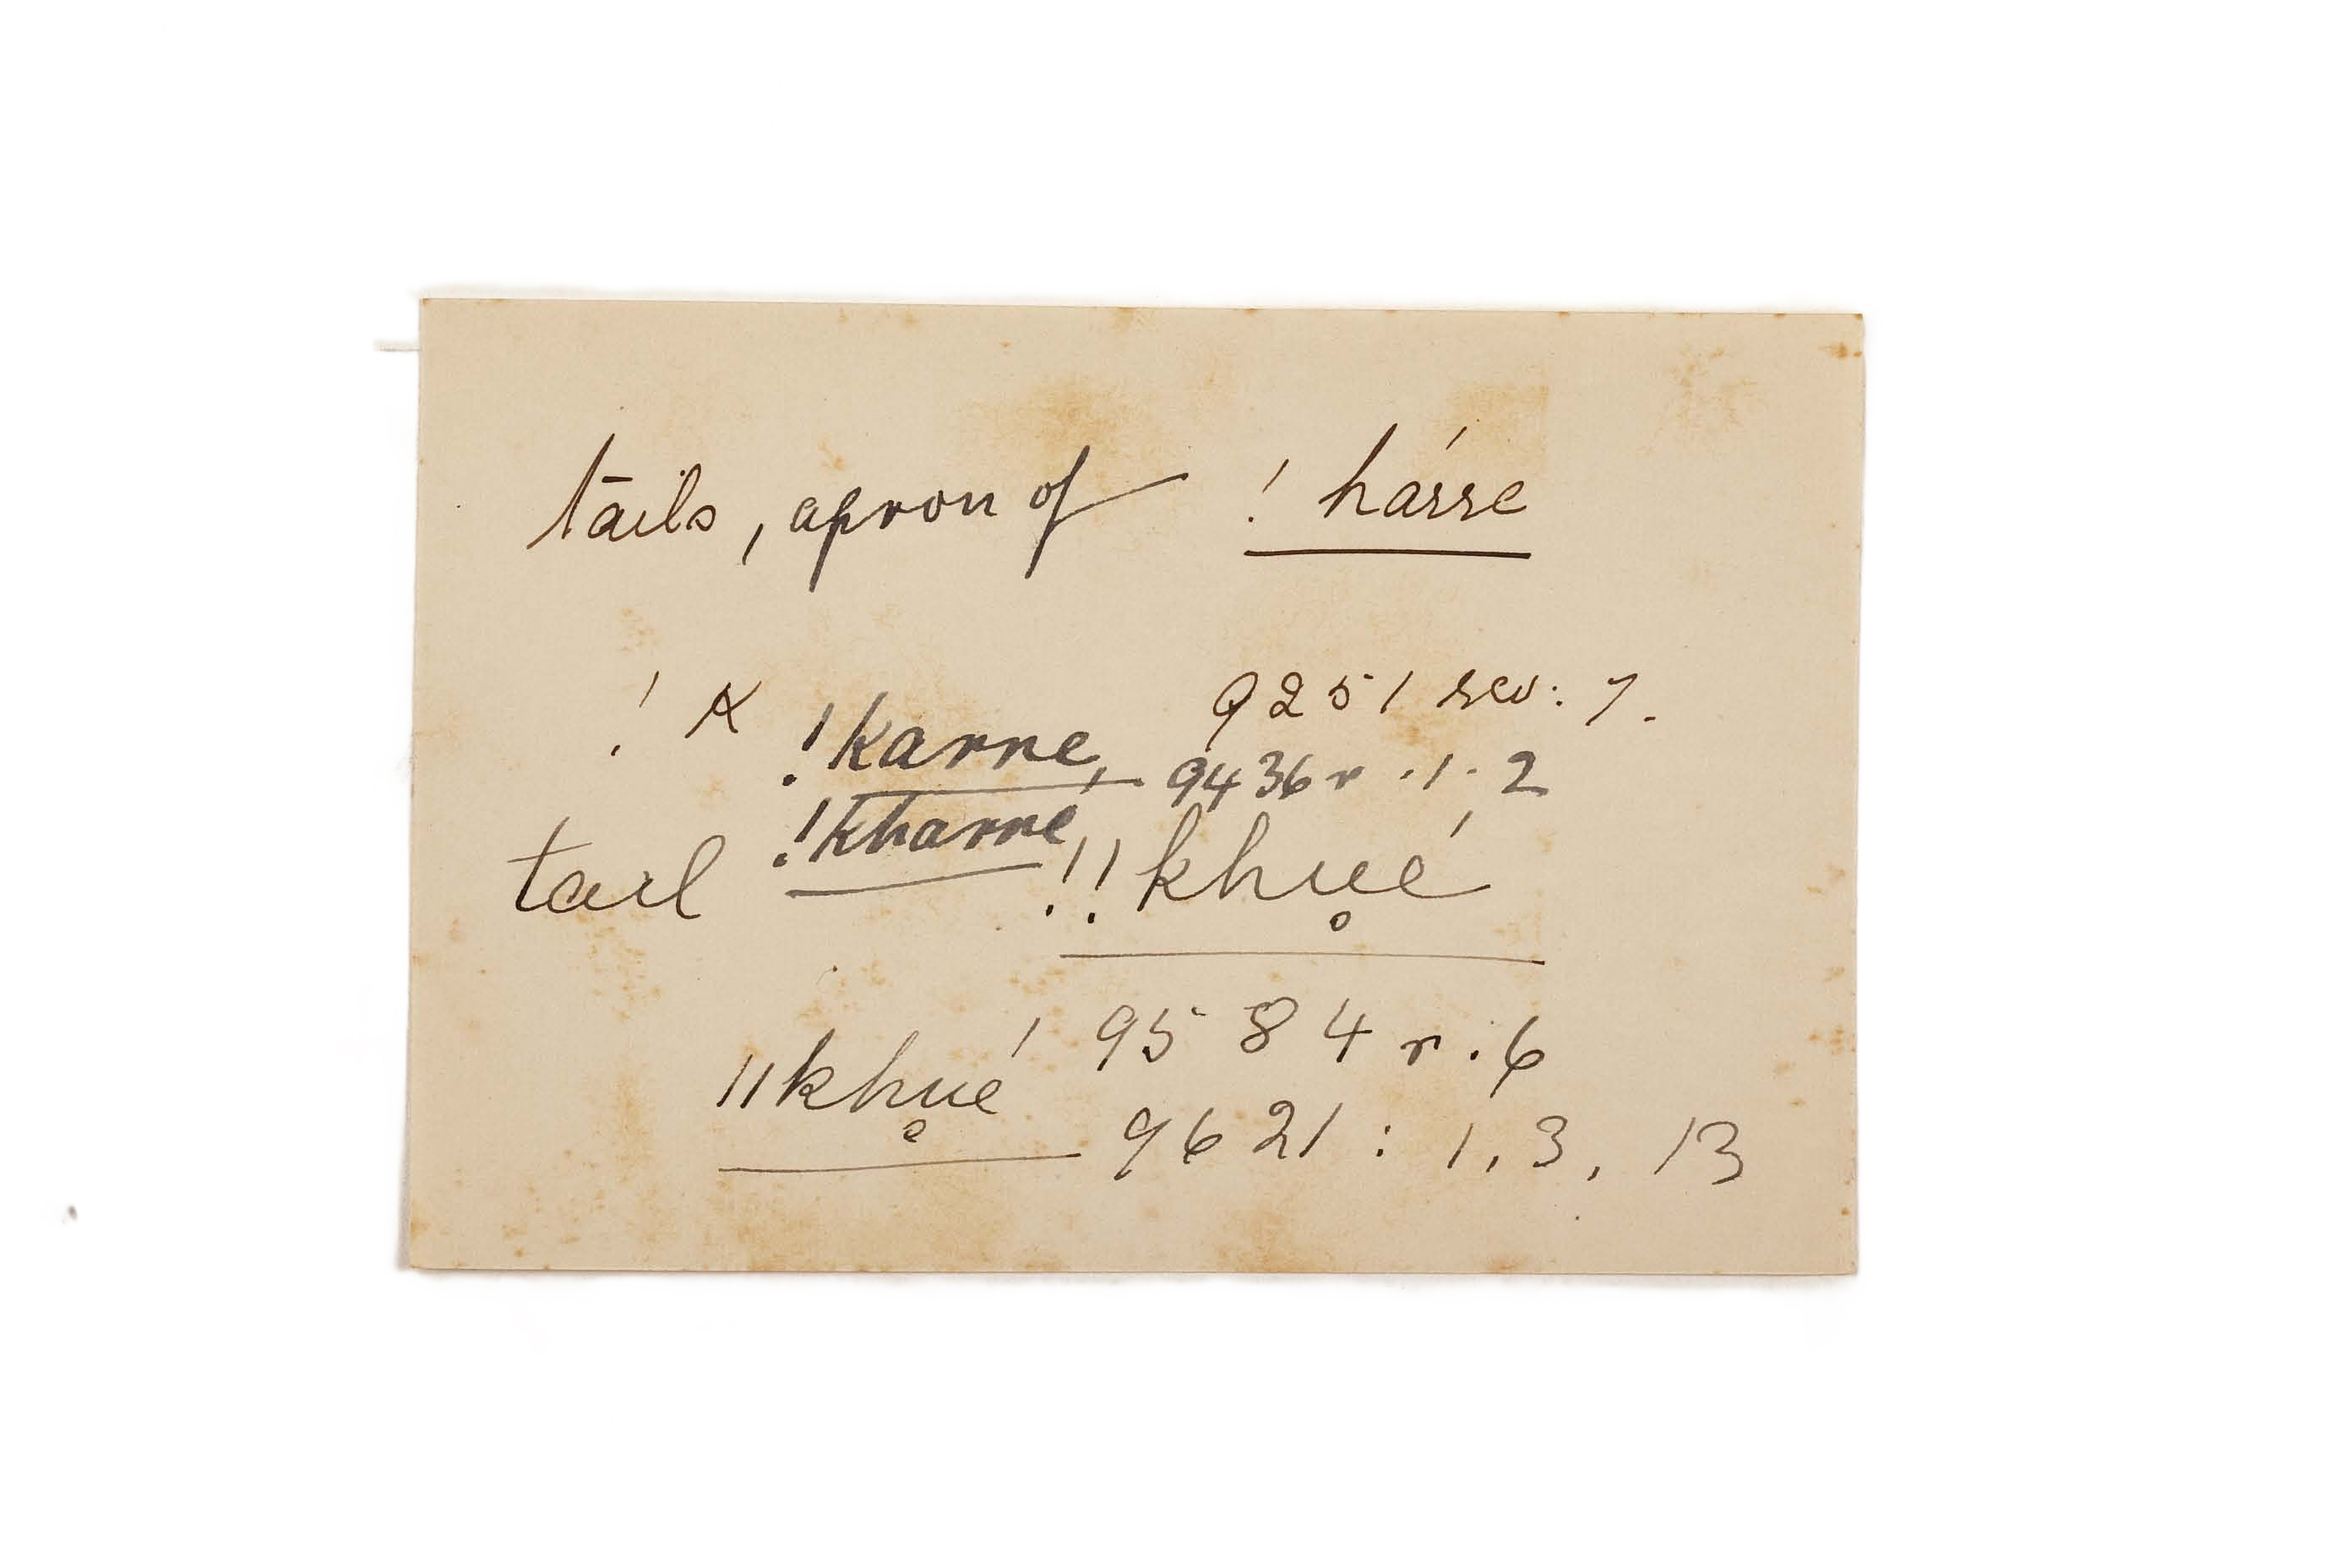 tails, apron of ! hárse
! ꓮ !karre, 9251 rev: 7.
9436 r . 1 . 2
!kharré
tail !!khu̥é
||khu̥é 9584 r . 6
9621 : 1, 3, 13